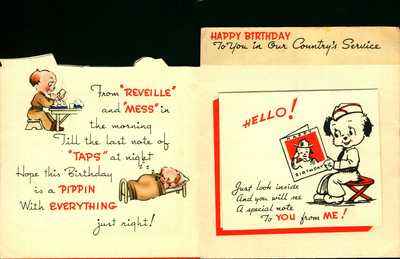 From "REVEILLE"
and "MESS" in
the morning
Till the last note of
"TAPS" at night
Hope this Birthday
is a PIPPIN
With EVERYTHING
just right!
HAPPY BIRTHDAY
To You in Our Country's Service
HELLO!
BIRTHDAY
Just look inside
And you will see
A special note
To YOU from ME!